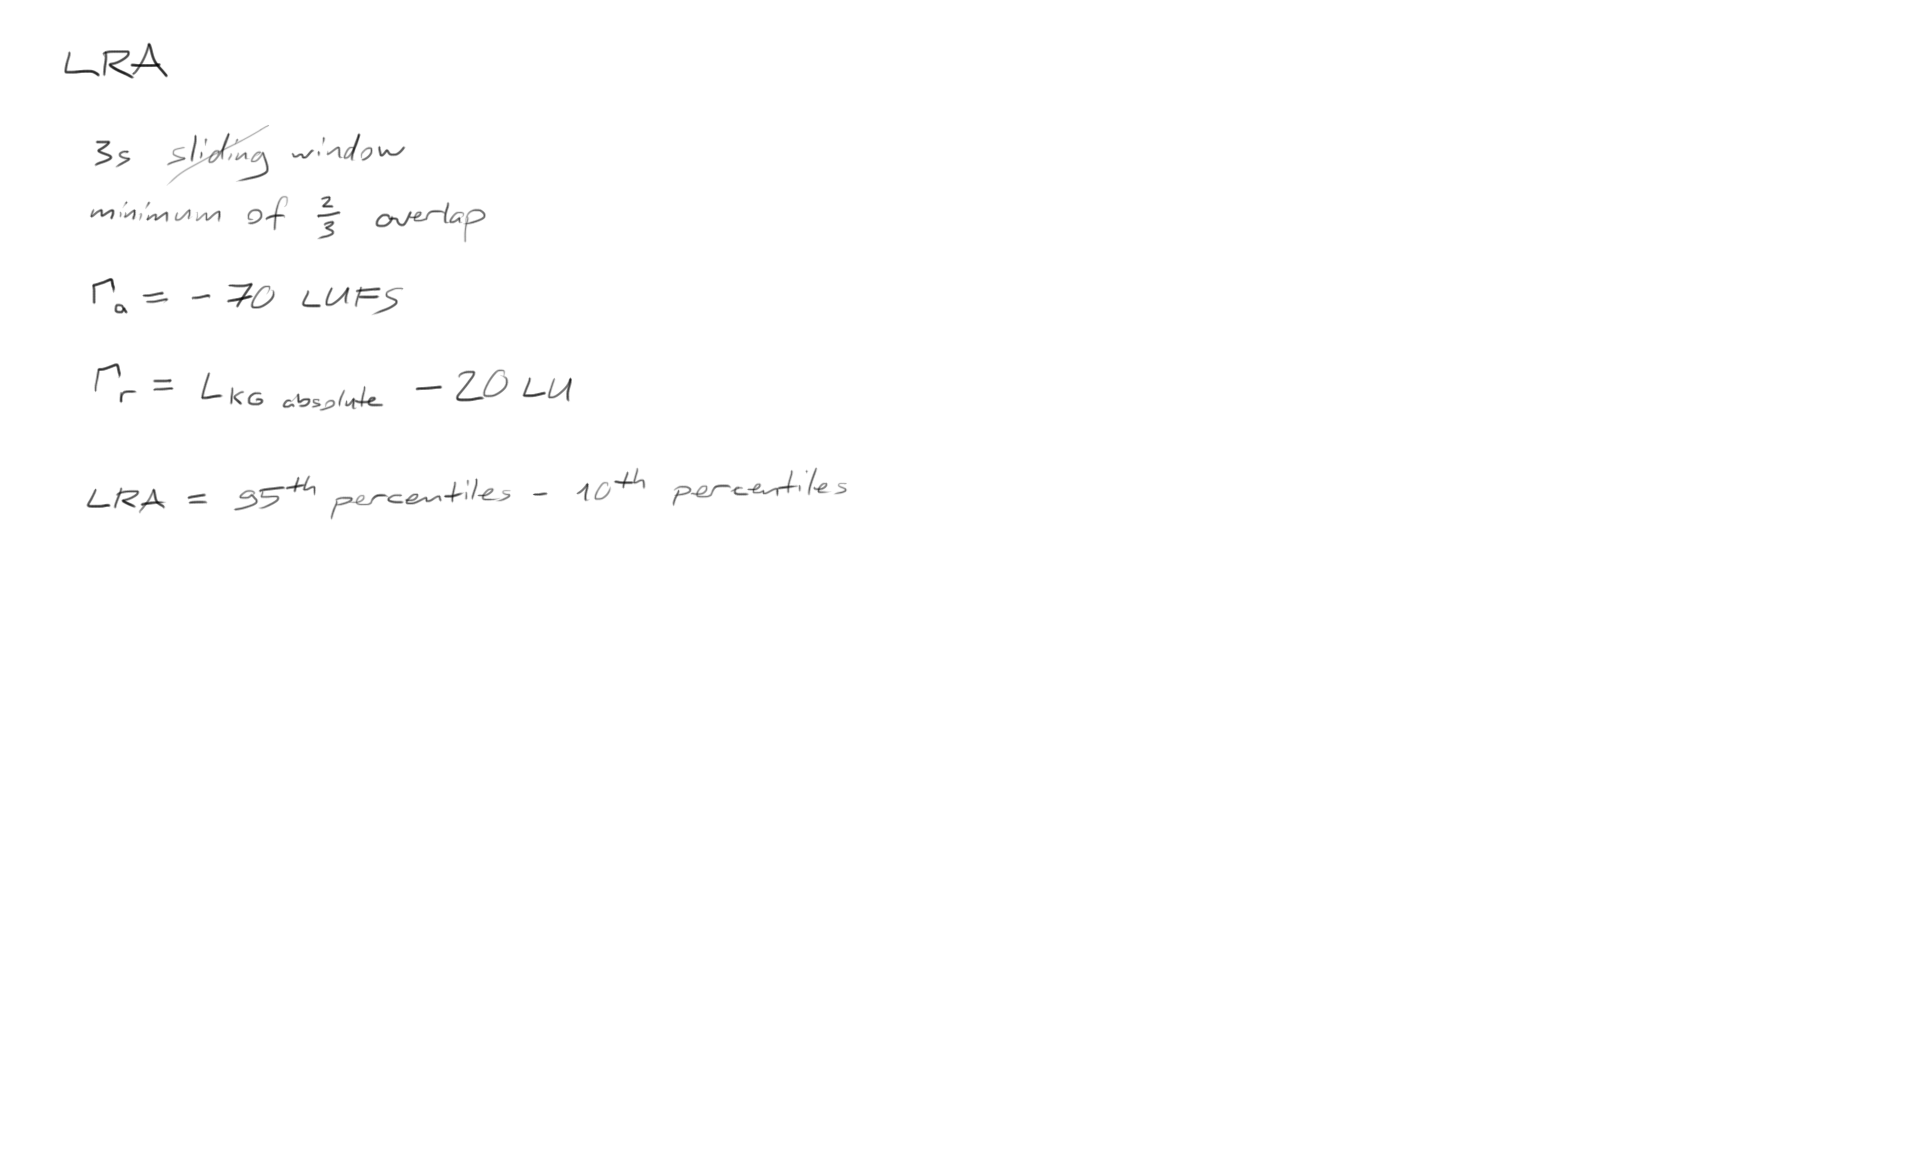 LRA
3s sliding window
minimum of 2/3 overlap
Γa = - 70 LUFS
Γr = LKG absolute - 20 LU
LRA = 95th percentiles - 10th percentiles